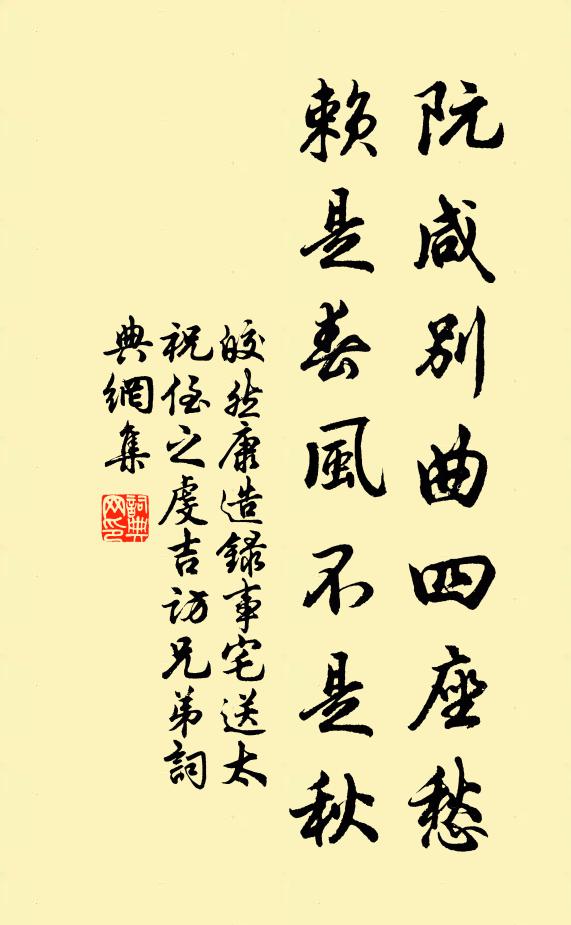 阮咸別曲四座愁
賴是春風不是秋
皎然康造錄事宅送太
祝侄之虔吉訪兄弟詞
典網集
詞典
网印